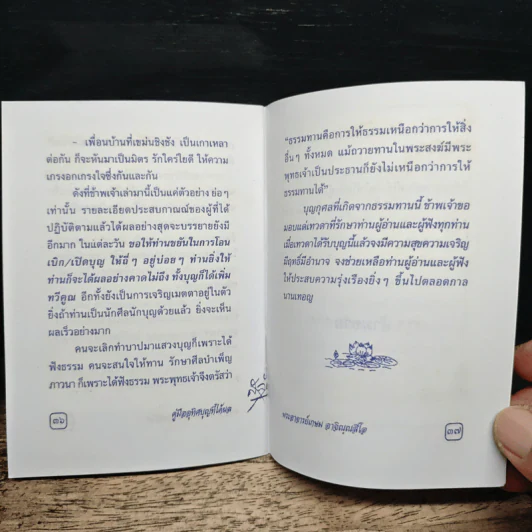 - เพื่อนบ้านที่เขม่นชิงชัง เป็นเกาเหลา
ต่อกัน ก็จะหันมาเป็นมิตร รักใคร่ใยดี ให้ความ
เกรงอกเกรงใจซึ่งกันและกัน
ดังที่ข้าพเจ้าเล่ามานี้เป็นแค่ตัวอย่าง ย่อๆ
เท่านั้น รายละเอียดประสบกาณณ์ของผู้ที่ได้
ปฏิบัติตามแล้วได้ผลอย่างสุดจะบรรยายยังมี
อีกมาก ในแต่ละวัน ขอให้ท่านขยันในการโอน
เบิก/เปิดบุญ ให้ยี่ๆ อยู่บ่อยๆ ท่านยิ่งให้
ท่านก็จะได้ผลอย่างคาดไม่ถึง ทั้งบุญก็ได้เพิ่ม
ทวีคูณ อีกทั้งยังเป็นการเจริญเมตตาอยู่ในตัว
ยิ่งถ้าท่านเป็นนักศีลนักบุญด้วยแล้ว ยิ่งจะเห็น
ผลเร็วอย่างมาก
คนจะเลิกทำบาปมาแสวงบุญก็เพราะได้
ฟังธรรม คนจะสนใจให้ทาน รักษาศีลบำเพ็ญ
ภาวนา ก็เพราะได้ฟังธรรม พระพุทธเจ้าจึงตรัสว่า
๓๖
คู่มืออุทิศบุญที่ได้ผล
"ธรรมทานคือการให้ธรรมเหนือกว่าการให้สิ่ง
อื่นๆ ทั้งหมด แม้ถวายทานในพระสงฆ์มีพระ
พุทธเจ้าเป็นประธานก็ยังไม่เหนือกว่าการให้
ธรรมทานได้"
บุญกุศลที่เกิดจากธรรมทานนี้ ข้าพเจ้าขอ
มอบแด่เทวดาที่รักษาท่านผู้อ่านและผู้ฟังทุกท่าน
เมื่อเทวดาได้รับบุญนี้แล้วจงมีความสุขความเจริญ
มีฤทธิ์มีอำนาจ จงช่วยเหลือท่านผู้อ่านและผู้ฟัง
ให้ประสบความรุ่งเรืองยิ่งๆ ขึ้นไปตลอดกาล
นานเทอญ
พระอาจารย์เกษม อาจิณฺณสีโล
๓๗